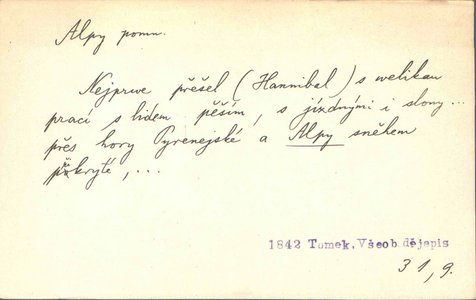 Alpy pomn.
Nejprwe přešel (Hannibal) s welikau
prací s lidem pěším, s jízdnými i slony...
přes hory Pyrenejské a Alpy sněhem
přikryté, ...
1842 Tomek, Všeob. dějepis
31, 9.